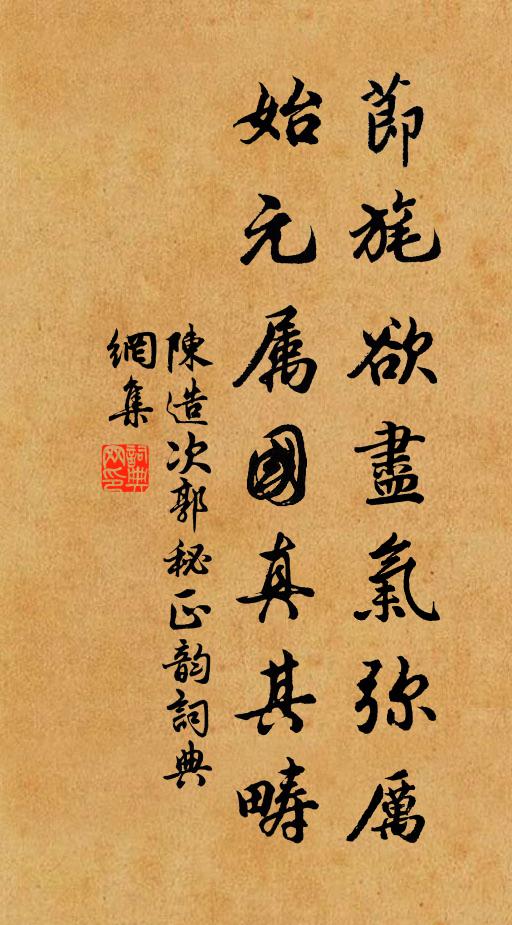 節旄欲盡氣弥厲
始元属國真其疇
陳造次郭秘正韵詞典
網集
詞典網印